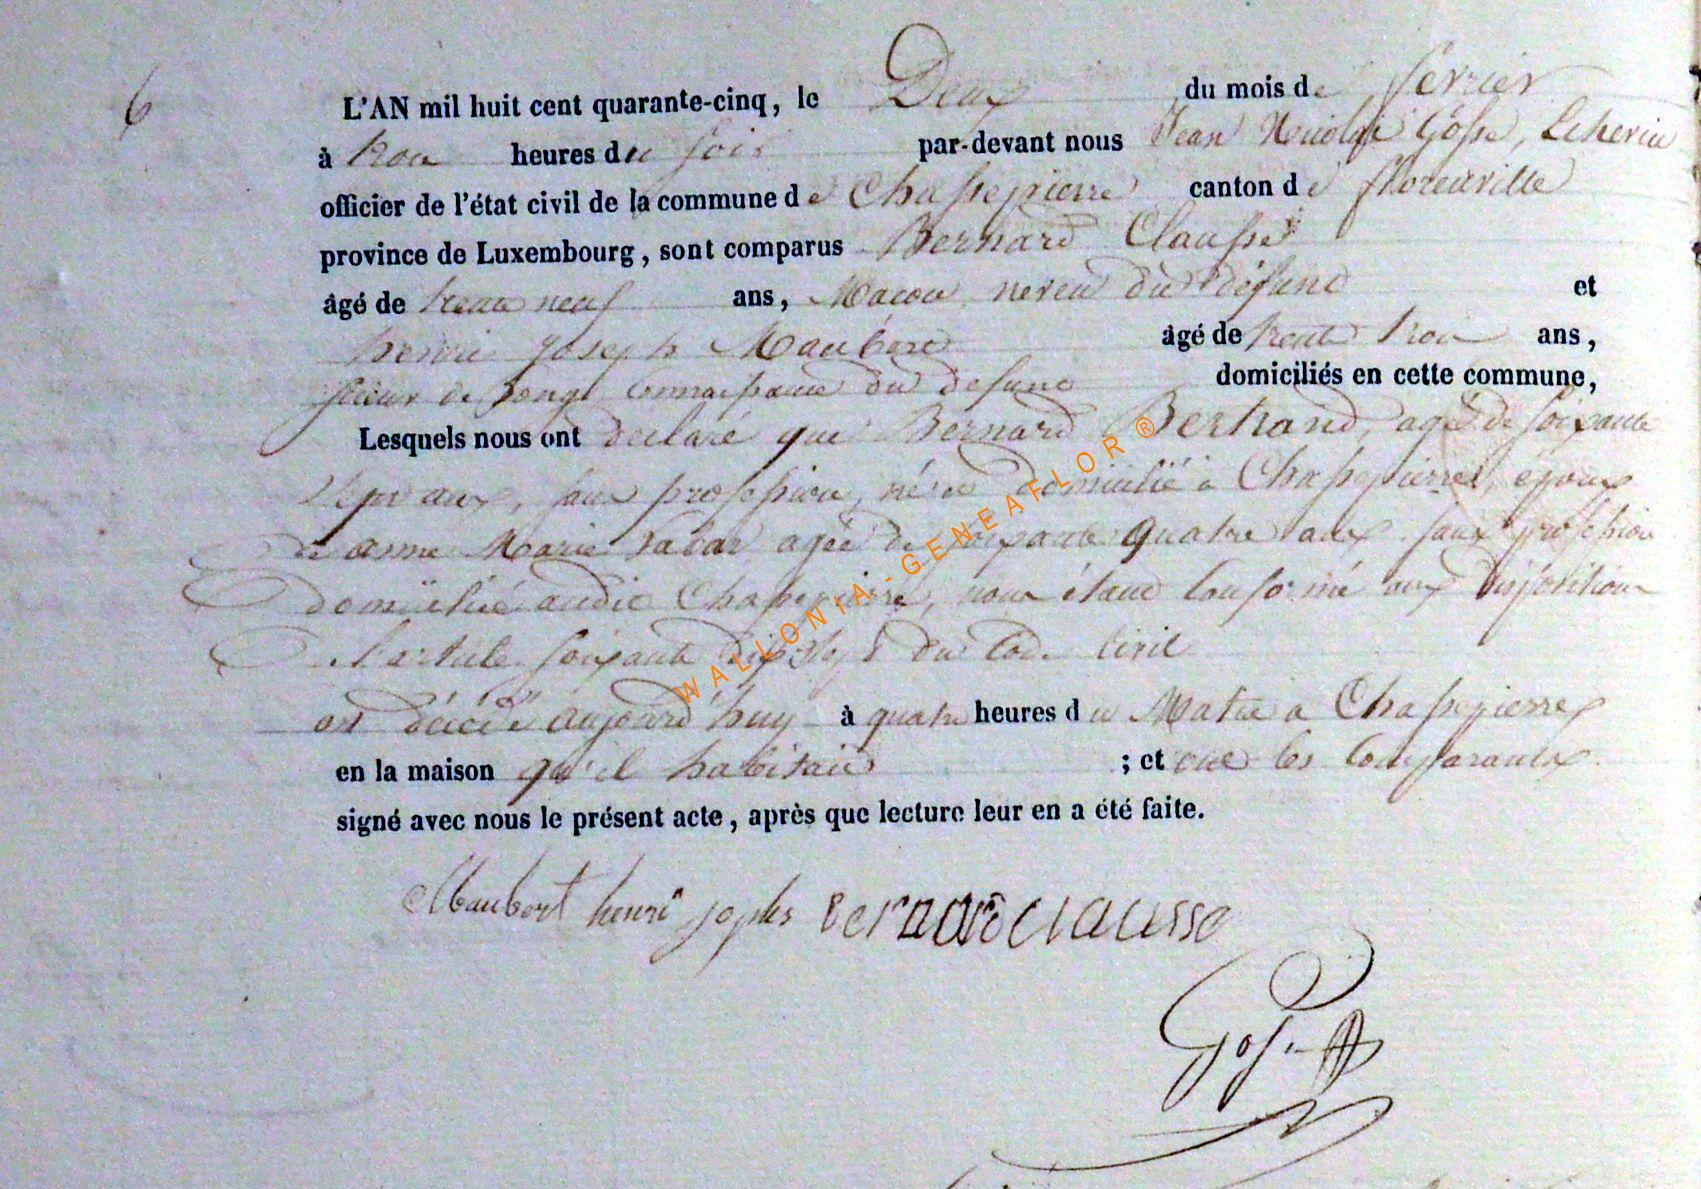 6
L'AN mil huit cent quarante-cinq, le Deux du mois de fevrier
à trois heures du soir par-devant nous Jean Nicolas Gosse, Echevin
officier de l'état civil de la commune de Chassepierre canton de florenville
province de Luxembourg, sont comparus Bernard Clausse
âgé de trente neuf ans, Macon, neveu du défunt et
henri joseph Maubert âgé de trente trois ans,
scieur de long, Connaissance du defunt domiciliés en cette commune,
Lesquels nous ont declaré que Bernard Bertrand, agé de soixante
Sept ans, sans profession, né et domicilié à Chassepierre, époux
de anne Marie agée de soixante quatre ans sans profession
domiciliée audit Chassepierre, nous étant Conformé aux dispositions
de l'article soixante dix Sept du Code Civil
est décédé aujourd'huy à quatre heures du Matin à Chassepierre
en la maison qu'il habitait ; et ont les Comparants
signé avec nous le présent acte, après que lecture leur en a été faite.
Maubert henri joseph Bernard Clausse
Gosse
WALLONIA-GENEAFLOR ®